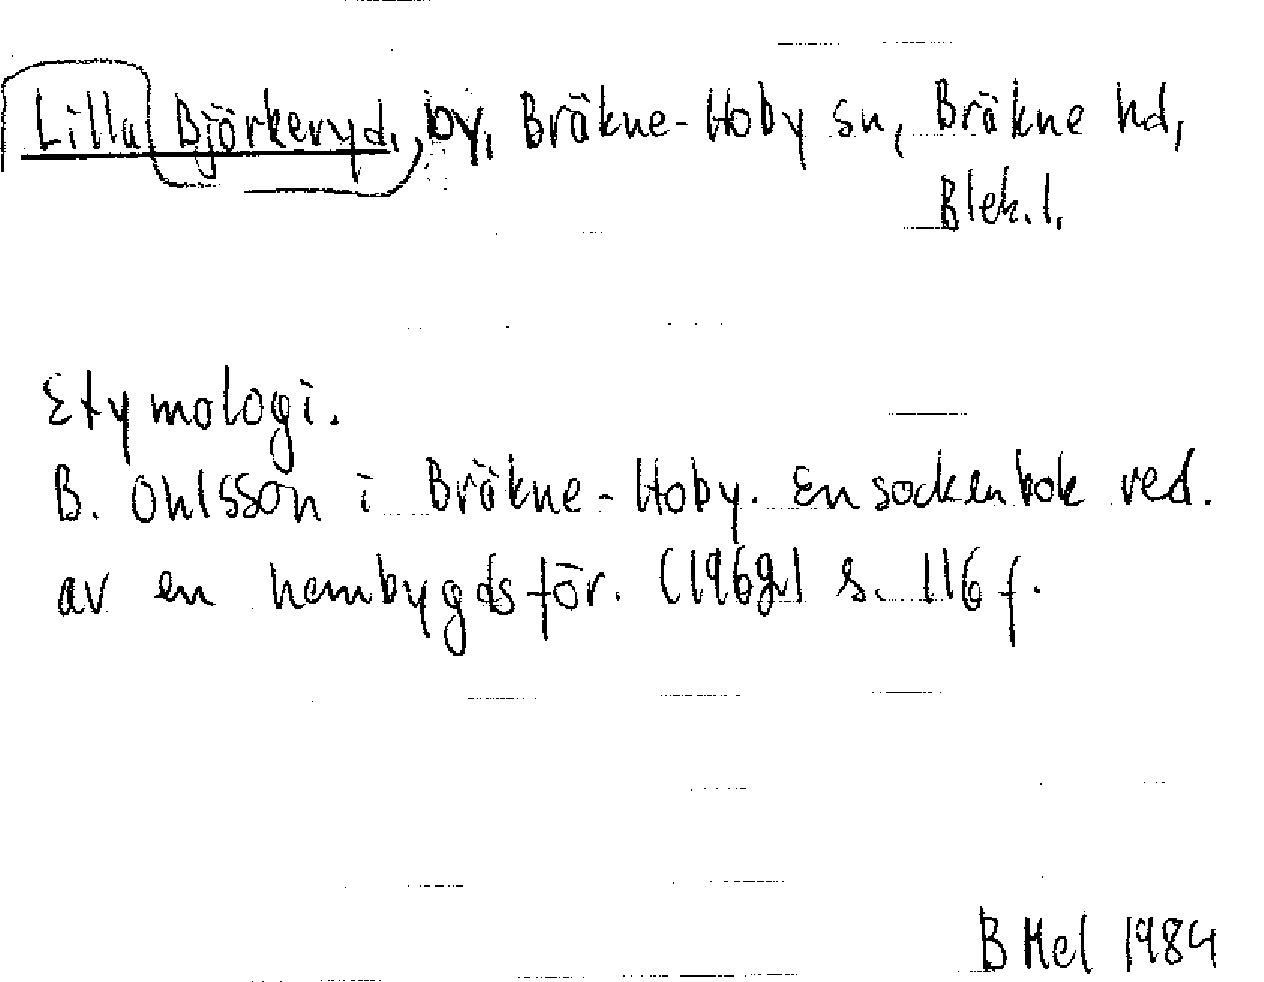 Lilla Björkeryd, by, Bräkne-Hoby sn, Bräkne hd,
Blek. l.
Etymologi.
B. Ohlsson i Bräkne-Hoby. En sockenbok red.
av en hembygdsför. s. 116 f.
B Hel 1984